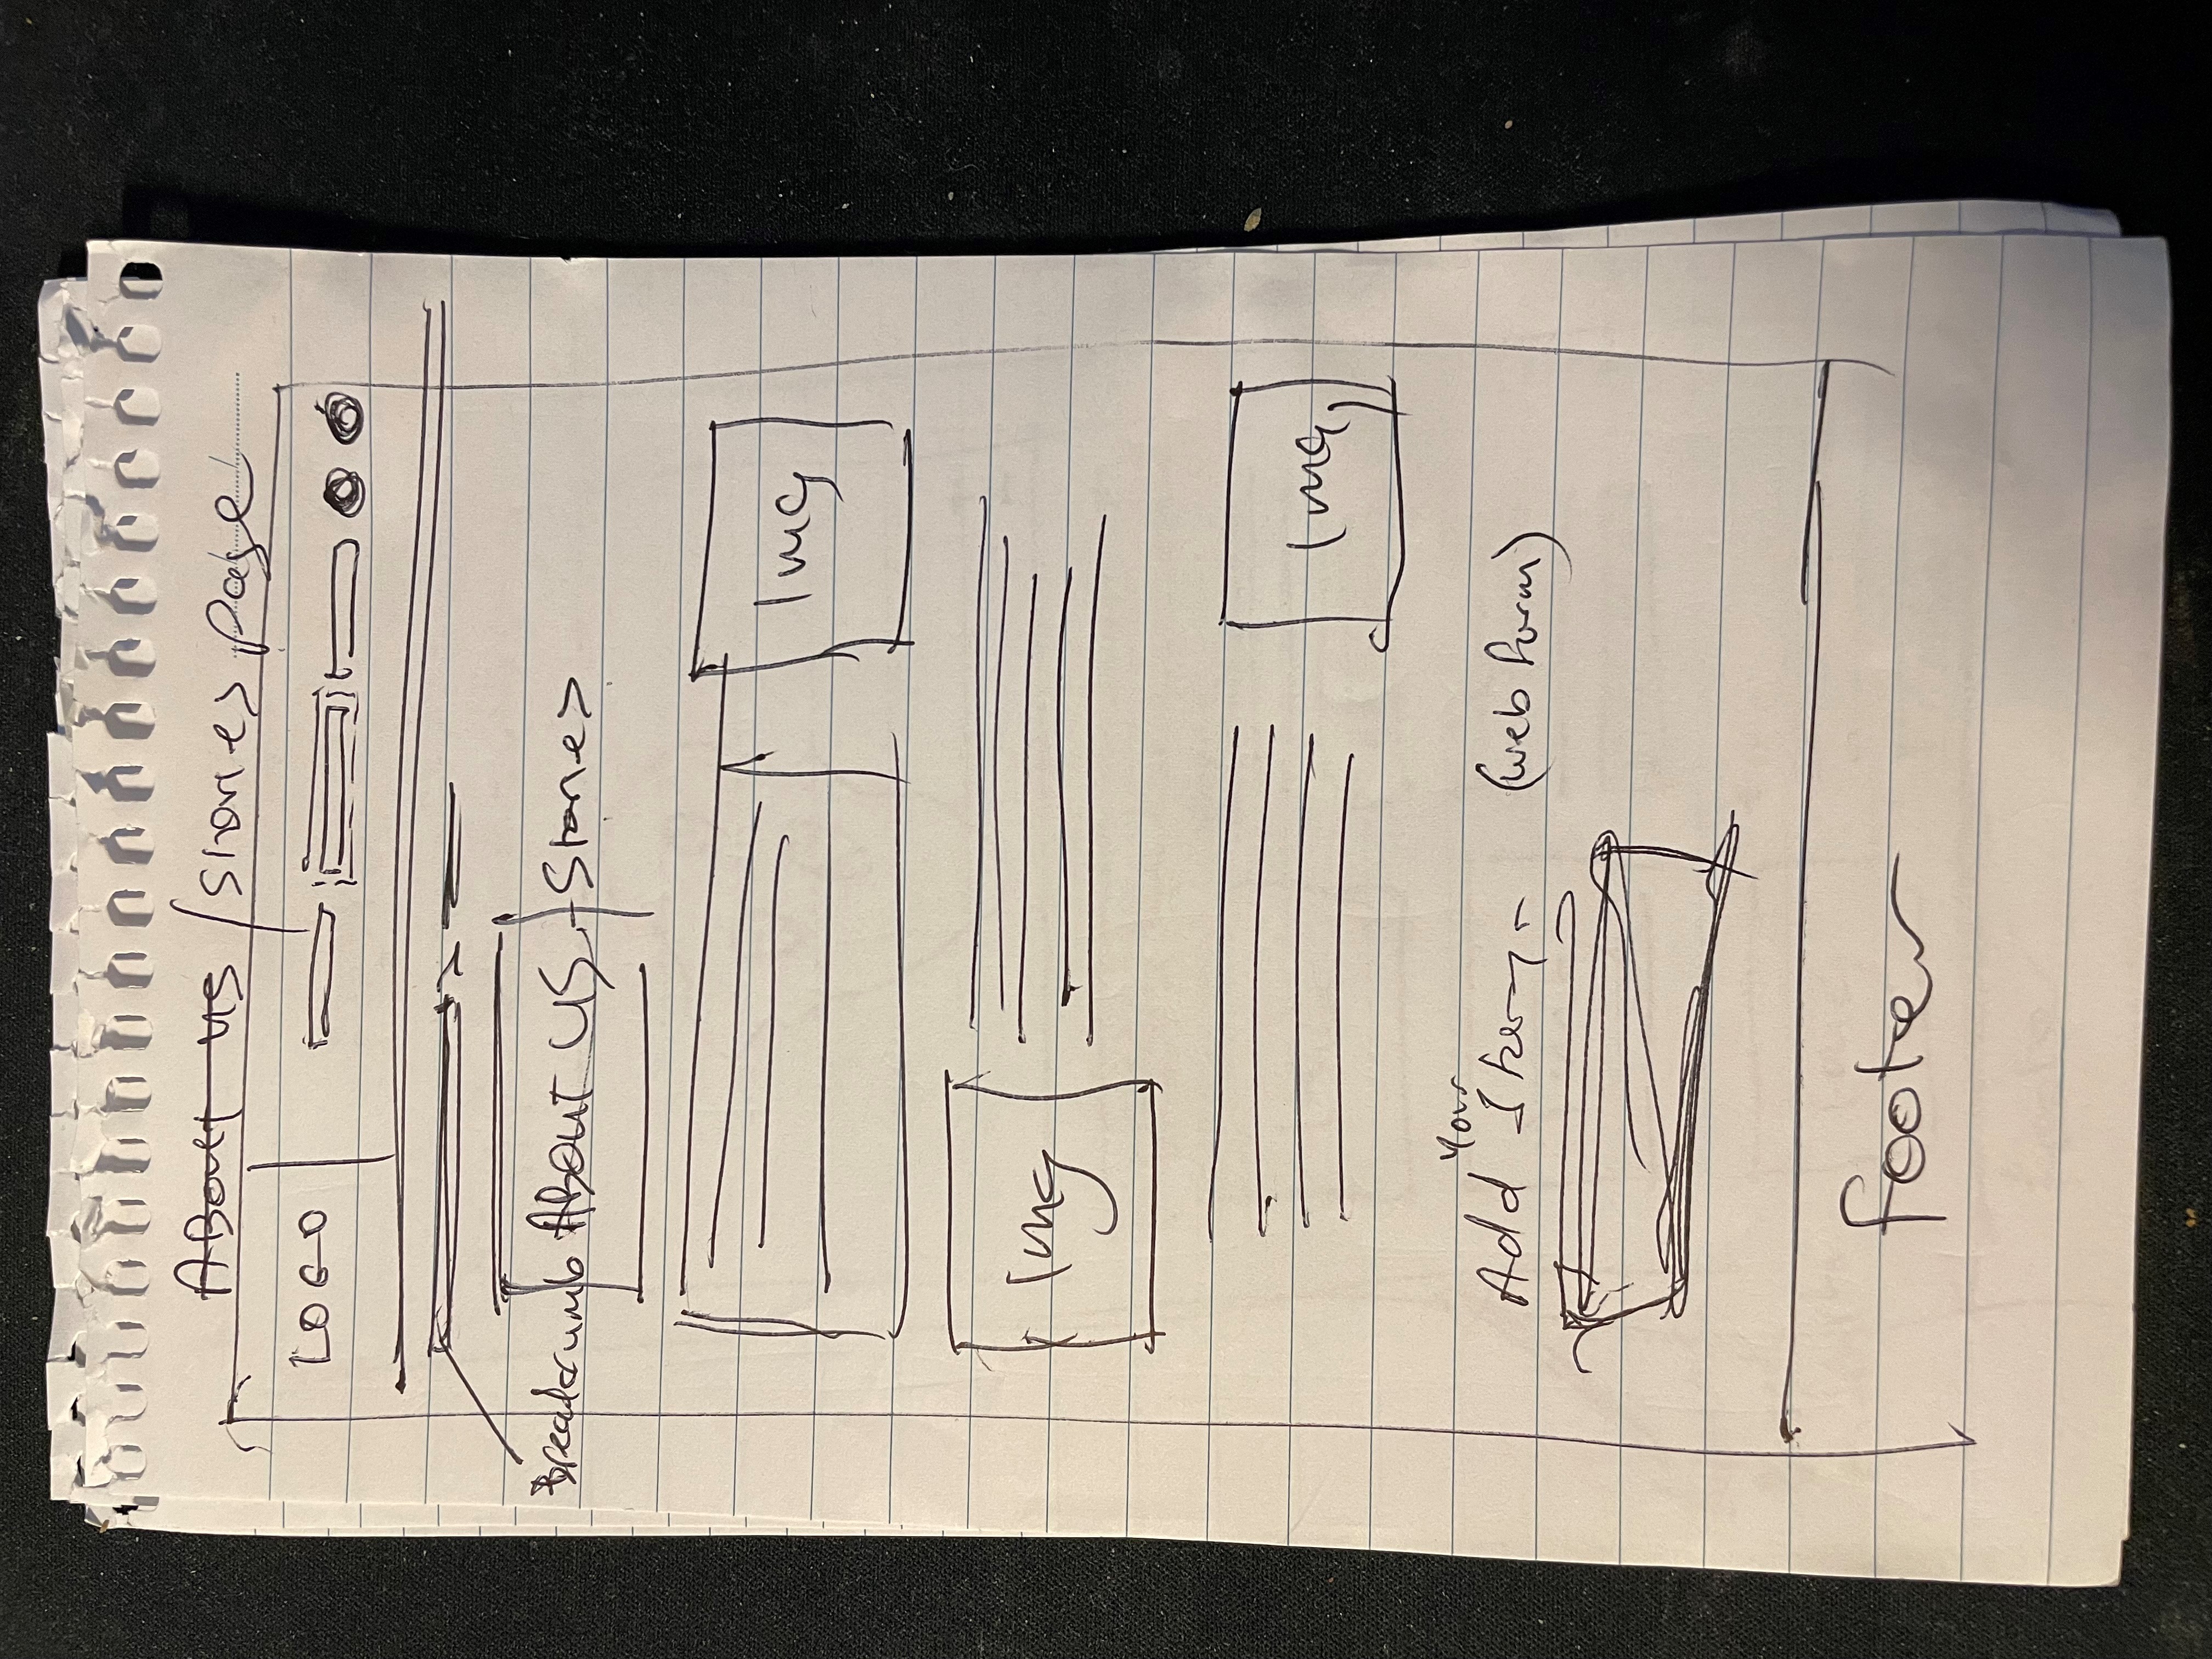 About us / Stories Page
LOGO
Breadcrumb
About US / Stories
Img
Img
Img
Add Your Story - (web form)
footer